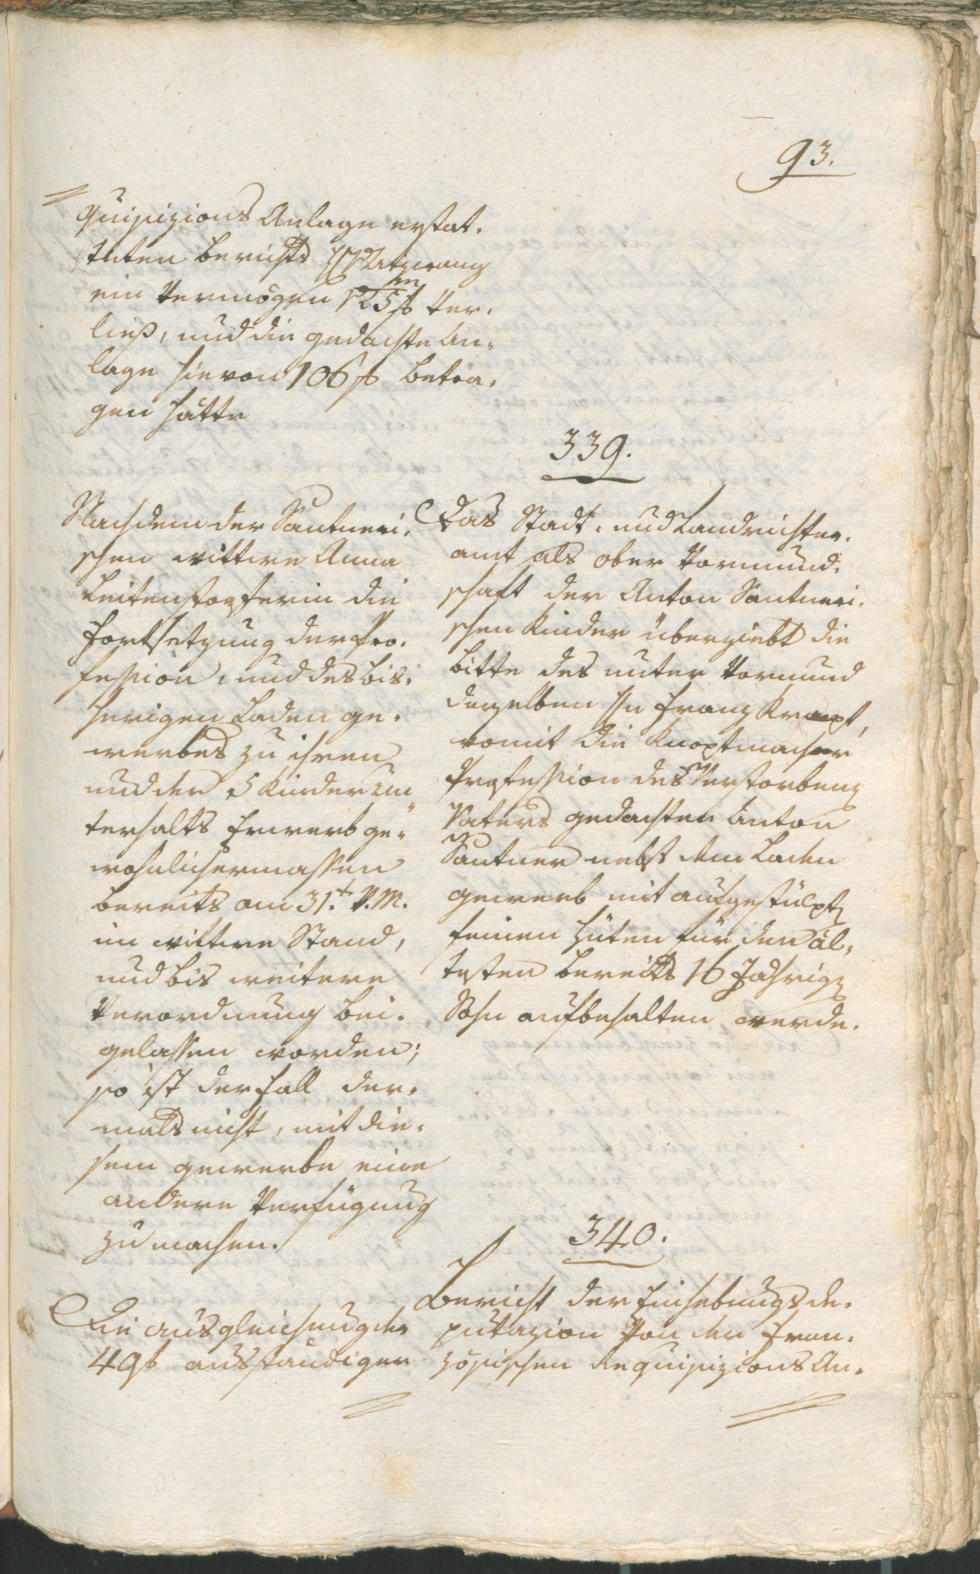 93.
quisizions Anlage erstat.
teten berichts
ein Vermögen 125 f Ver.
ließ, und die gedachte An.
lage hievon 106 f betra.
gen hätte
339.
Nachdem der Santneri.
schen wittwe Anna
Leitenstorferin die
Fortsetzung der Pro.
fession, und des bis.
herigen Laden ge.
werbes zu ihren
und der 5 Kinder un
terhalts Erwerb ge.
wohnlichermassen
bereits am 31.t V. M.
im wittwe Stand,
und bis weitere
Verordnung bei.
gelassen worden;
so ist der Fall der.
mals nicht, mit die.
sem gewerbe eine
andere Verfügung
zu machen.
Das Stadt. und Landrichter.
amt als ober Vormund.
schaft der Anton Santneri.
schen Kinder übergiebt die
bitte des unter Vormund
derselben Hn Franz
womit die Knopfmacher
Profession des Verstorbenen
Vaters gedachten Anton
Santner nebst dem Laden
gewerb mit aufgestülpten
feinen Hüten für den äl.
testen bereits 16 Jährigen
Sohn aufbehalten werde.
340.
Die ausgleichung der
49 f ausständigen
Bericht der Einhebungs de.
putazion Von der Fran.
zösischen Requisizions An.